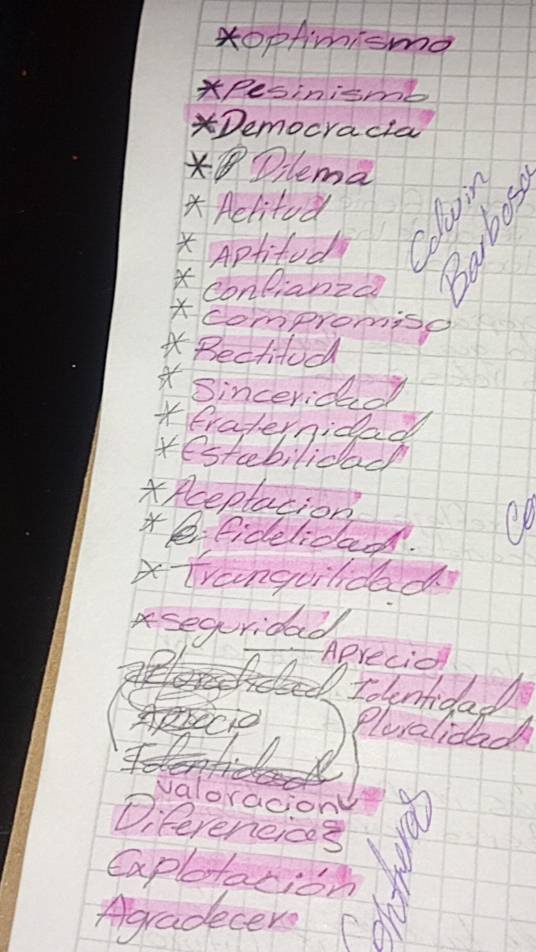 *optimismo
*Pesinismo
*Democracia
* Dilema
* Actitud
* Aptitud
* confianza
* compromiso
* Rectitud
* Sinceridad
* fraternidad
* Estabilidad
* Aceptacion
* fidelidad.
* Tranquilidad
* seguridad
Aprecio
Identidad
Pluralidad
Aprecio
Identidad
valoracion
Diferencias
Explotación
Agradecer
Calvin
Barbosa